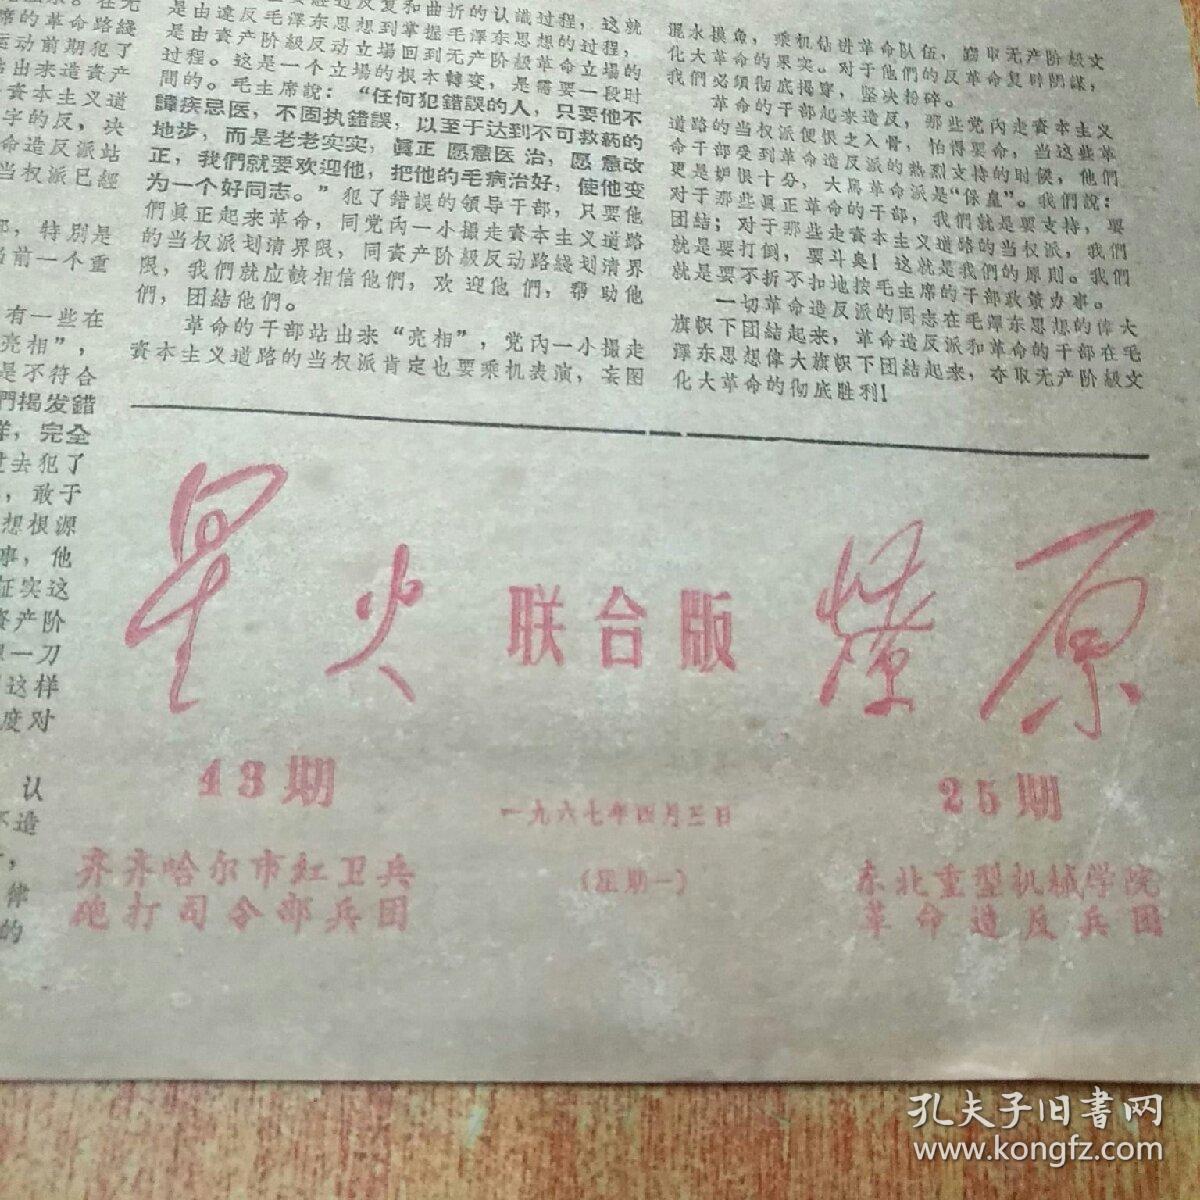 席的革命路綫
运动前期犯了
站出来造資产
資本主义道
字的反，决
命造反派站
当权派已經
部，特別是
当前一个重
有一些在
亮相"，
是不符合
們揭发錯
样，完全
过去犯了
，敢于
想根源
事，他
征实这
資产阶
一刀
这样
度对
认
不造
律
的
反复和曲折的认識过程，这就
是由違反毛澤东思想到掌握毛澤东思想的过程，
是由資产阶級反动立場回到无产阶級革命立場的
过程。这是一个立場的根本轉变，是需要一段时
間的。毛主席說："任何犯錯誤的人，只要他不
諱疾忌医，不固执錯誤，以至于达到不可救葯的
地步，而是老老实实，眞正愿意医治，愿意改
正，我們就要欢迎他，把他的毛病治好，使他变
为一个好同志。"犯了錯誤的领导干部，只要他
們眞正起来革命，同党內一小撮走資本主义道路
的当权派划清界限，同資产阶級反动路綫划清界
限，我們就应該相信他們，欢迎他們，帮助他
們，团結他們。
革命的干部站出来"亮相"，党內一小撮走
資本主义道路的当权派肯定也要乘机表演，妄图
混水摸魚，乘机钻进革命队伍，窃取无产阶級文
化大革命的果实。对于他們的反革命复辟阴謀，
我們必須彻底揭穿，坚决粉碎。
革命的干部起来造反，那些党內走資本主义
道路的当权派便恨之入骨，怕得要命，当这些革
命干部受到革命造反派的热烈支持的时候，他們
更是妒恨十分，大駡革命派是"保皇"。我們說：
对于那些眞正革命的干部，我們就是要支持，要
团結；对于那些走資本主义道路的当权派，我們
就是要打倒，要斗臭！这就是我們的原则。我們
就是要不折不扣地按毛主席的干部政策办事。
一切革命造反派的同志在毛澤东思想的偉大
旗帜下团結起来，革命造反派和革命的干部在毛
澤东思想偉大旗帜下团結起来，夺取无产阶級文
化大革命的彻底胜利！
星火 联合版 燎原
43期
一九六七年四月三日
25期
齐齐哈尔市紅卫兵
炮打司令部兵团
（星期一）
东北重型机械学院
革命造反兵团
孔夫子旧書网
www.kongfz.com